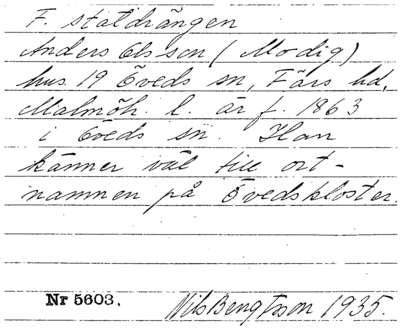 F. statdrängen
Anders Olsson (Modig)
hus. 19 Öveds sn, Färs hd,
Malmöh. l. är f. 1863
i Öveds sn. Han
känner väl till ort-
namnen på Övedskloster.
Nr 5603.
Nils Bengtsson 1935.